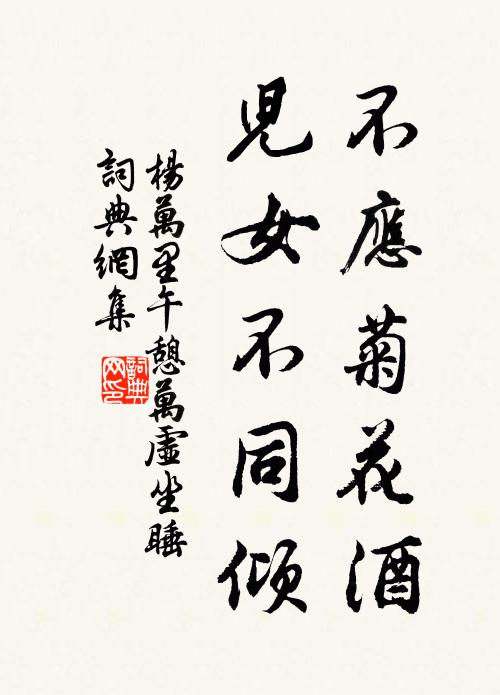 不應菊花酒
兒女不同傾
楊萬里午憩萬虛坐睡
詞典網集
詞典
网印